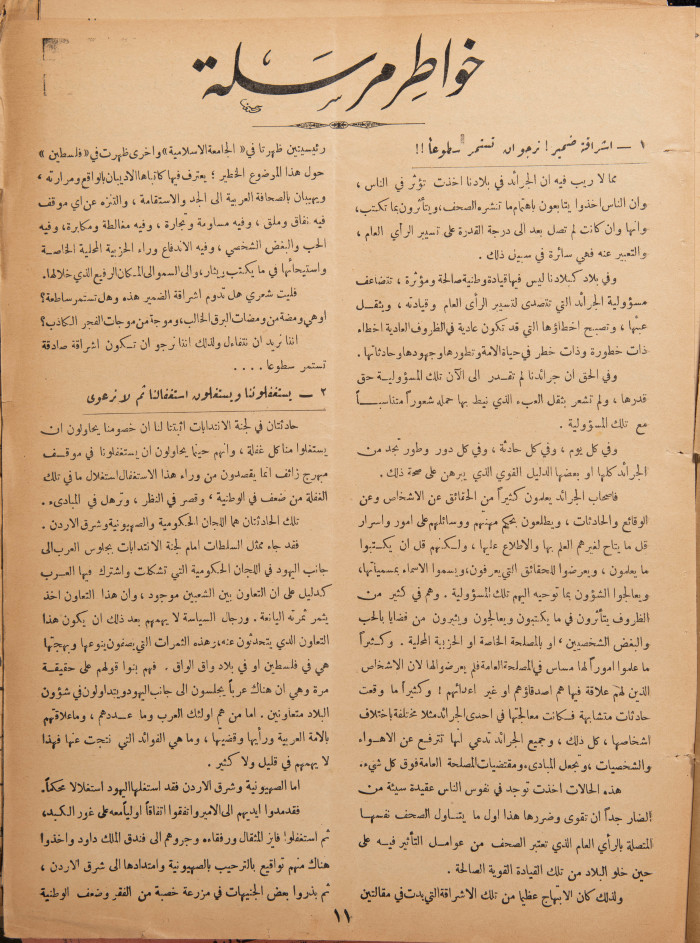 خواطر مرسلة
١ — اشراقة ضمير! نرجو ان تستمر سطوعاً!!
مما لا ريب فيه ان الجرائد في بلادنا اخذت تؤثر في الناس،
وان الناس اخذوا يتابعون باهتمام ما تنشره الصحف، ويتأثرون بما تكتب،
وانها وان كانت لم تصل بعد الى درجة القدرة على تسيير الرأي العام،
والتعبير عنه فهي سائرة في سبيل ذلك.
وفي بلاد كبلادنا ليس فيها قيادة وطنية صالحة ومؤثرة، تتضاعف
مسؤولية الجرائد التي تتصدى لتسيير الرأى العام وقيادته، ويثقل
عبئها، وتصبح اخطاؤها التي قد تكون عادية في الظروف العادية اخطاء
ذات خطورة وذات خطر في حياة الامة وتطورها وجهودها وحادثاتها.
وفي الحق ان جرائدنا لم تقدر الى الآن تلك المسؤولية حق
قدرها، ولم تشعر بثقل العبء الذي نيط بها حمله شعوراً متناسباً
مع تلك المسؤولية.
وفي كل يوم، وفي كل حادثة، وفي كل دور وطور تجد من
الجرائد كلها او بعضها الدليل القوي الذي يبرهن على صحة ذلك.
فاصحاب الجرائد يعلمون كثيراً من الحقائق عن الاشخاص وعن
الوقائع والحادثات، ويطلعون بحكم مهنتهم ووسائلهم على امور واسرار
قل ما يتاح لغيرهم العلم بها والاطلاع عليها، ولكنهم قل ان يكتبوا
ما يعلمون، ويعرضوا للحقائق التي يعرفون، ويسموا الاسماء بمسمياتها،
ويعالجوا الشؤون بما توحيه اليهم تلك المسؤولية. وهم في كثير من
الظروف يتأثرون في ما يكتبون ويعالجون ويثيرون من قضايا بالحب
والبغض الشخصيين، او بالمصلحة الخاصة او الحزبية المحلية. وكثيراً
ما علموا اموراً لها مساس في المصلحة العامة فلم يعرضوا لها لان الاشخاص
الذين لهم علاقة فيها هم اصدقاؤهم او غير اعدائهم! وكثيراً ما وقعت
حادثات متشابهة فكانت معالجتها في احدى الجرائد مثلا مختلفة باختلاف
اشخاصها، كل ذلك، وجميع الجرائد تدعي انها تترفع عن الاهواء
والشخصيات، وتجعل المبادىء ومقتضيات المصلحة العامة فوق كل شيء.
هذه الحالات اخذت توجد في نفوس الناس عقيدة سيئة من
الضار جداً ان تقوى وضررها هذا اول ما يتناول الصحف نفسها
المتصلة بالرأي العام الذي تعتبر الصحف من عوامل التأثير فيه على
حين خلو البلاد من تلك القيادة القوية الصالحة.
ولذلك كان الابتهاج عظيما من تلك الاشراقة التي بدت في مقالتين
رئيسيتين ظهرتا في «الجامعة الاسلامية» واخرى ظهرت في «فلسطين»
حول هذا الموضوع الخطير؛ يعترف فيها كاتباها الاديبان بالواقع ومرارته،
ويهيبان بالصحافة العربية الى الجد والاستقامة، والتنزه عن اي موقف
فيه نفاق وملق، وفيه مساومة وتجارة، وفيه مغالطة ومكابرة، وفيه
الحب والبغض الشخصي، وفيه الاندفاع وراء الحزبية المحلية الخاصة
واستيحائها في ما يكتب ويثار، والى السمو الى المكان الرفيع الذي خلالها.
فليت شعري هل تدوم اشراقة الضمير هذه وهل تستمر ساطعة؟
او هي ومضة من ومضات البرق الخالب، وموجة من موجات الفجر الكاذب؟
اننا نريد ان نتفاءل ولذلك اننا نرجو ان تكون اشراقة صادقة
تستمر سطوعا....
٢ — يستغفلوننا ويستغلون استغفالنا ثم لا نرعوى
حادثتان في لجنة الانتدابات اثبتتا لنا ان خصومنا يحاولون ان
يستغلوا منا كل غفلة، وانهم حينما يحاولون ان يستغفلونا في موقف
مبهرج زائف انما يقصدون من وراء هذا الاستغفال استغلال ما في تلك
الغفلة من ضعف في الوطنية، وقصر في النظر، وترهل في المبادىء.
تلك الحادثتان هما اللجان الحكومية والصهيونية وشرق الاردن.
فقد جاء ممثل السلطات امام لجنة الانتدابات بجلوس العرب الى
جانب اليهود في اللجان الحكومية التي تشكلت واشترك فيها العرب
كدليل على ان التعاون بين الشعبين موجود، وان هذا التعاون اخذ
يثمر ثمرته اليانعة. ورجال السياسة لا يهمهم بعد ذلك ان يكون هذا
التعاون الذي يتحدثون عنه، وهذه الثمرات التي يصفون ينوعها وبهجتها
هي في فلسطين او في بلاد واق الواق. فهم بنوا قولهم على حقيقة
مرة وهي ان هناك عرباً يجلسون الى جانب اليهود ويتداولون في شؤون
البلاد متعاونين. اما من هم اولئك العرب وما عددهم، وما علاقتهم
بالامة العربية ورأيها وقضيتها، وما هي الفوائد التي نتجت عنها فهذا
لا يهمهم في قليل ولا كثير.
اما الصهيونية وشرق الاردن فقد استغلها اليهود استغلالا محكماً.
فقد مدوا ايديهم الى الامير واتفقوا اتفاقاً اولياً معه على غور الكبد،
ثم استغلوا فايز المثقال ورفقاءه وجروهم الى فندق الملك داود واخذوا
هناك منهم تواقيع بالترحيب بالصهيونية وامتدادها الى شرق الاردن،
ثم بذروا بعض الجنيهات في مزرعة خصبة من الفقر وضعف الوطنية
١١